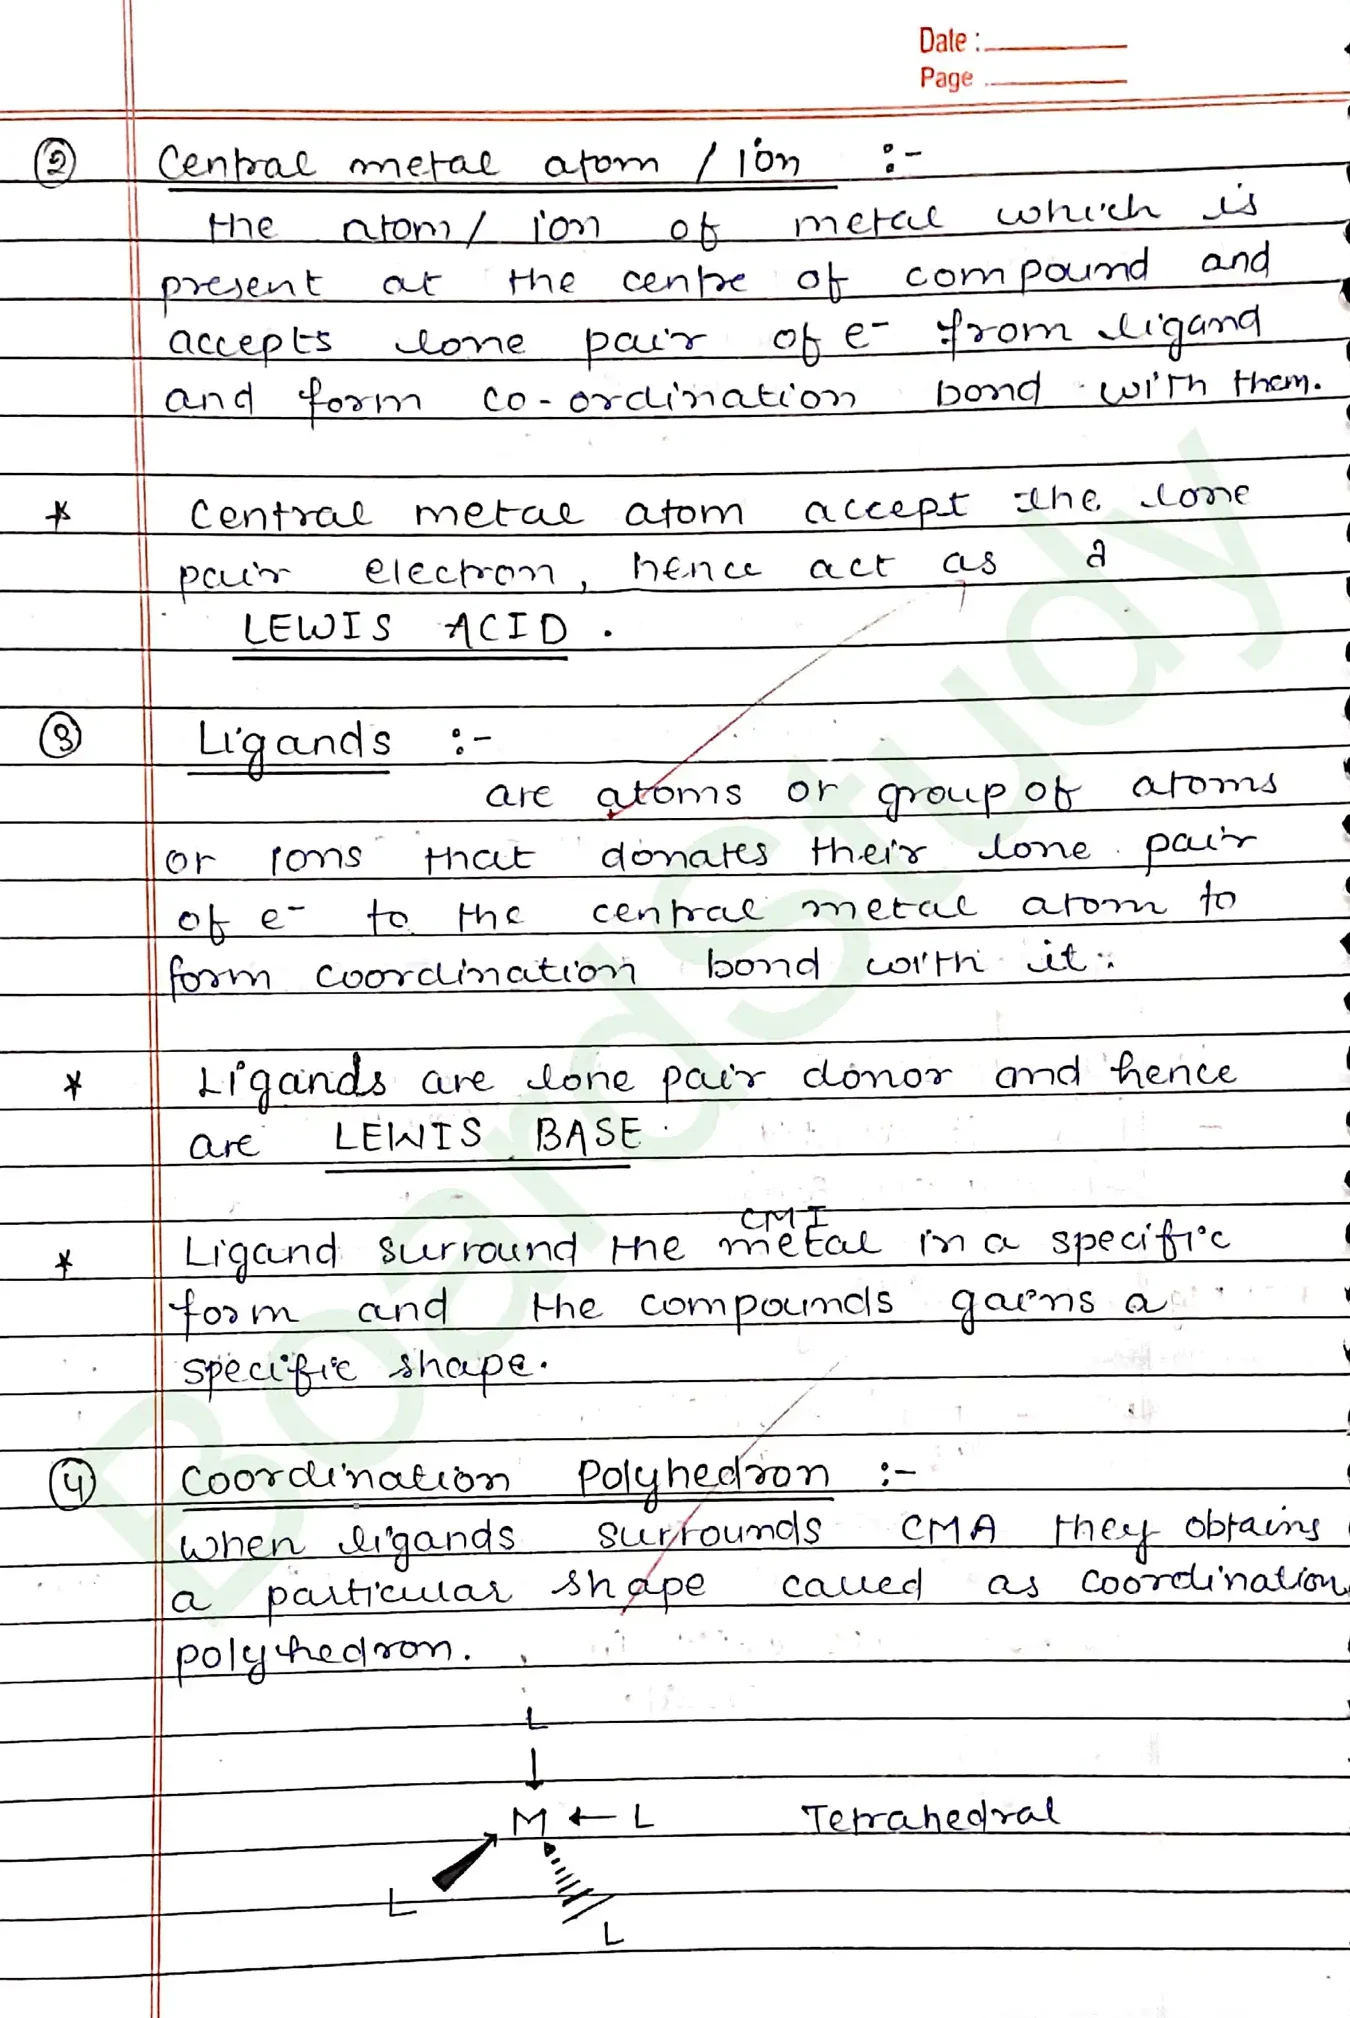 Date :
Page
② Central metal atom / ion :-
the atom/ ion of metal which is
present at the centre of compound and
accepts lone pair of e- from ligand
and form co-ordination bond with them.
* Central metal atom accept the lone
pair electron, hence act as a
LEWIS ACID.
③ Ligands :-
are atoms or group of atoms
or ions that donates their lone pair
of e- to the central metal atom to
form coordination bond with it.
* Ligands are lone pair donor and hence
are LEWIS BASE.
CMI
* Ligand surround the metal in a specific
form and the compounds gains a
specific shape.
④ Coordination Polyhedron :-
when ligands surrounds CMA they obtains
a particular shape called as coordination
polyhedron.
L
M ← L Tetrahedral
L
L
BoardStudy